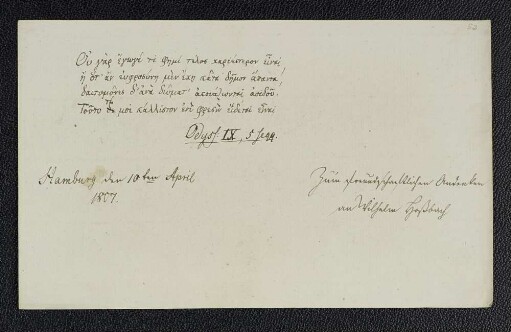 Οὐ γὰρ ἔγωγέ τί φημι τέλος χαριέστερον εἶναι
ἢ ὅτ' ἂν εὐφροσύνη μὲν ἔχῃ κάτα δῆμον ἅπαντα,
δαιτυμόνες δ' ἀνὰ δώματ' ἀκουάζωνται ἀοιδοῦ.
Τοῦτό τί μοι κάλλιστον ἐνὶ φρεσὶν εἴδεται εἶναι
Odyss IX, 5 seqq.
Hamburg den 10ten April
1807.
Zum freundschaftlichen Andenken
an Wilhelm Hoßbach